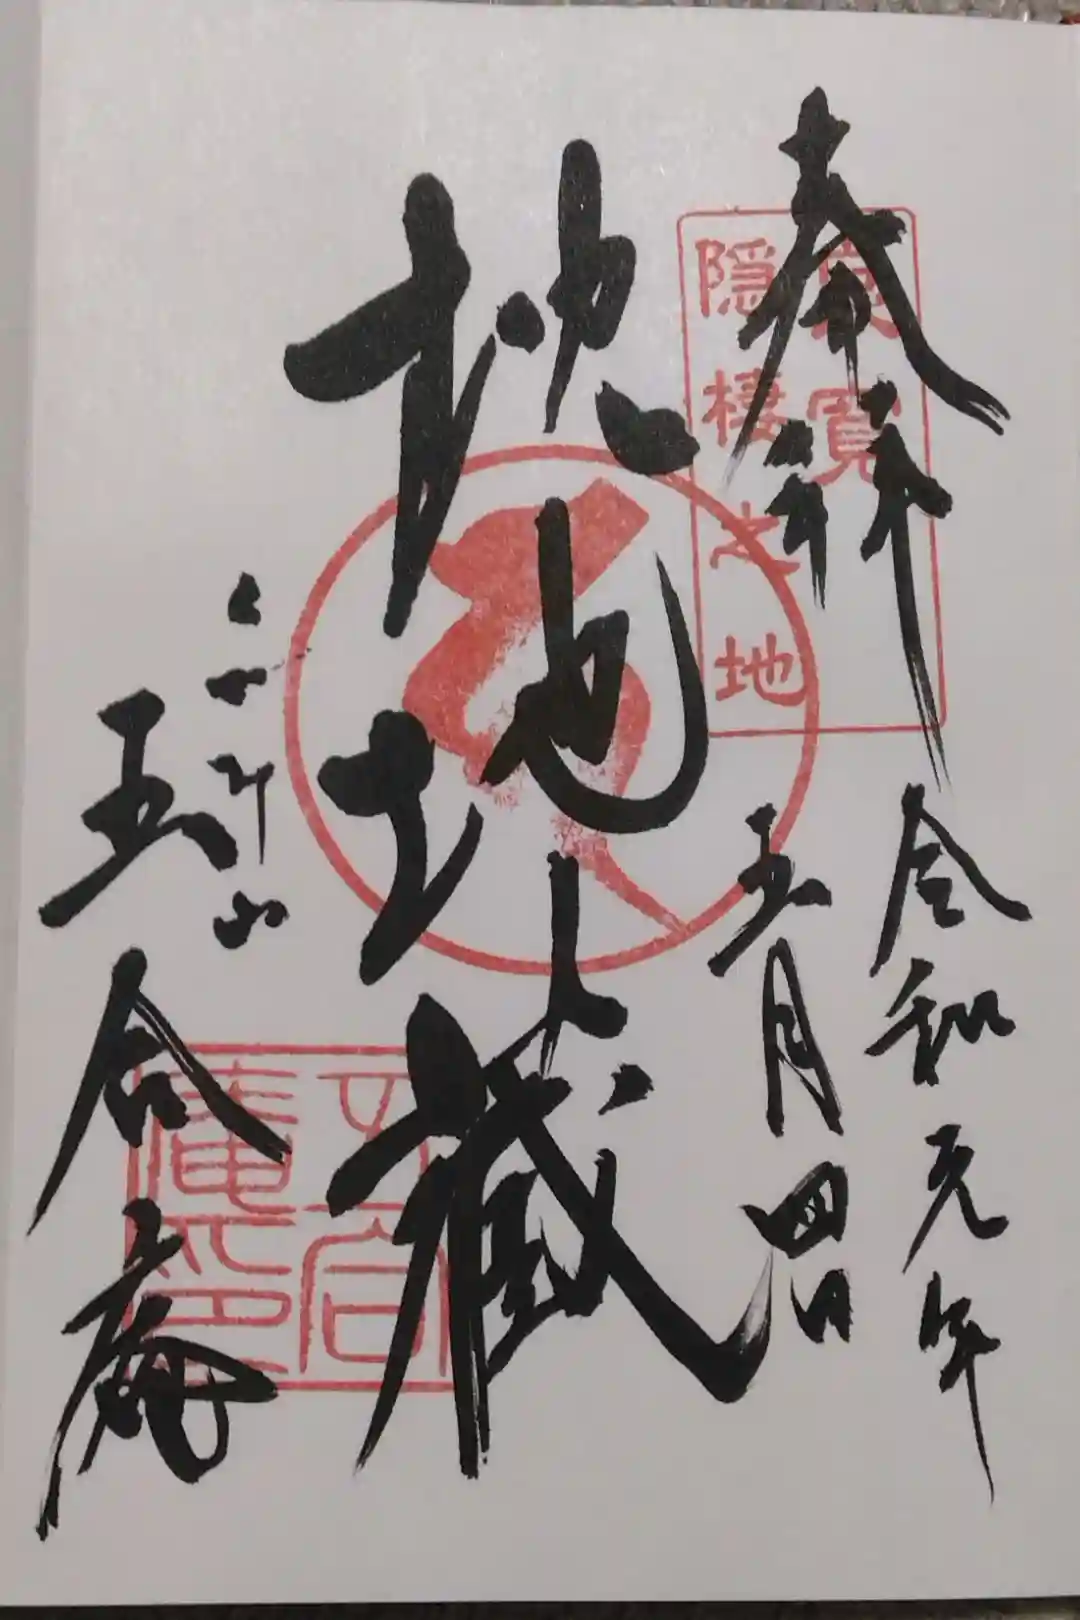 奉拝
良寛
隠棲之地
令和元年
五月四日
地蔵
五合庵
五合
庵印